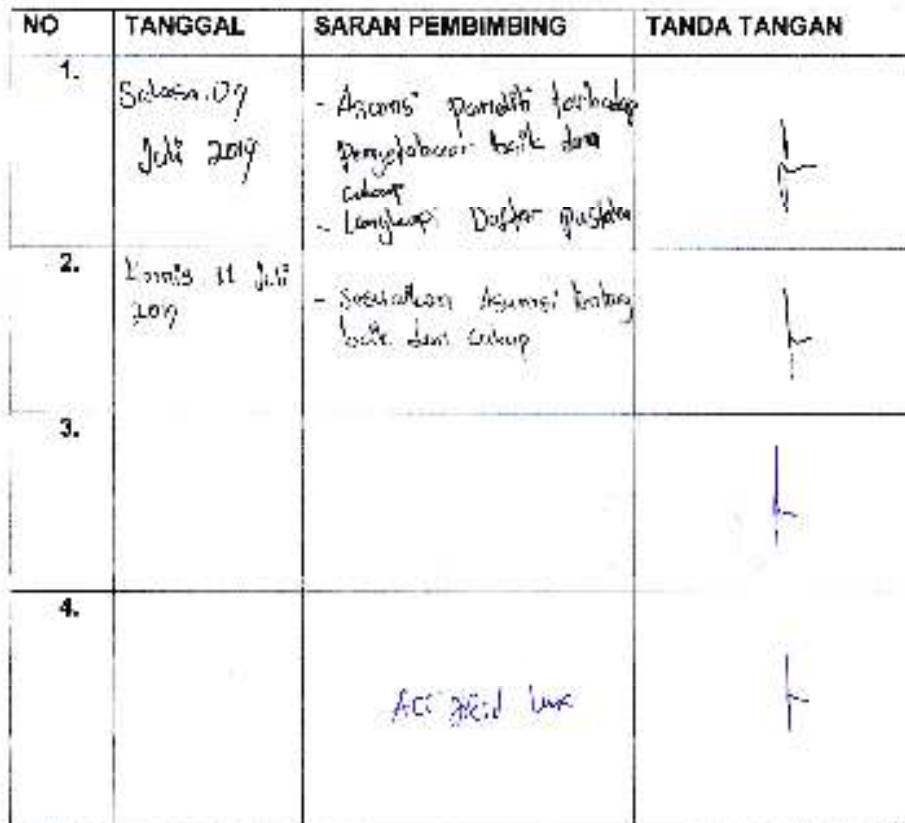 NO TANGGAL SARAN PEMBIMBING TANDA TANGAN
1.
Selasa, 09
Juli 2019
- Asumsi peneliti terhadap
pengetahuan baik dan
cukup
- Lengkapi Daftar pustaka
2.
Kamis 11 Juli
2019
- Sesuaikan Asumsi tentang
baik dan cukup
3.
4.
ACC jilid lux